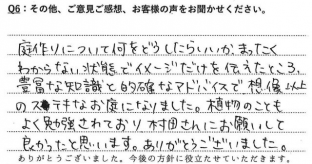 Q6：その他、ご意見ご感想、お客様の声をお聞かせください。
庭作りについて何をどうしたらいいか、まったく
わからない状態でイメージだけを伝えたところ、
豊富な知識と的確なアドバイスで想像以上
のステキなお庭になりました。植物のことも
よく勉強されており村田さんにお願いして
良かったと思います。ありがとうございました。
ありがとうございました。今後の方針に役立たせていただきます。